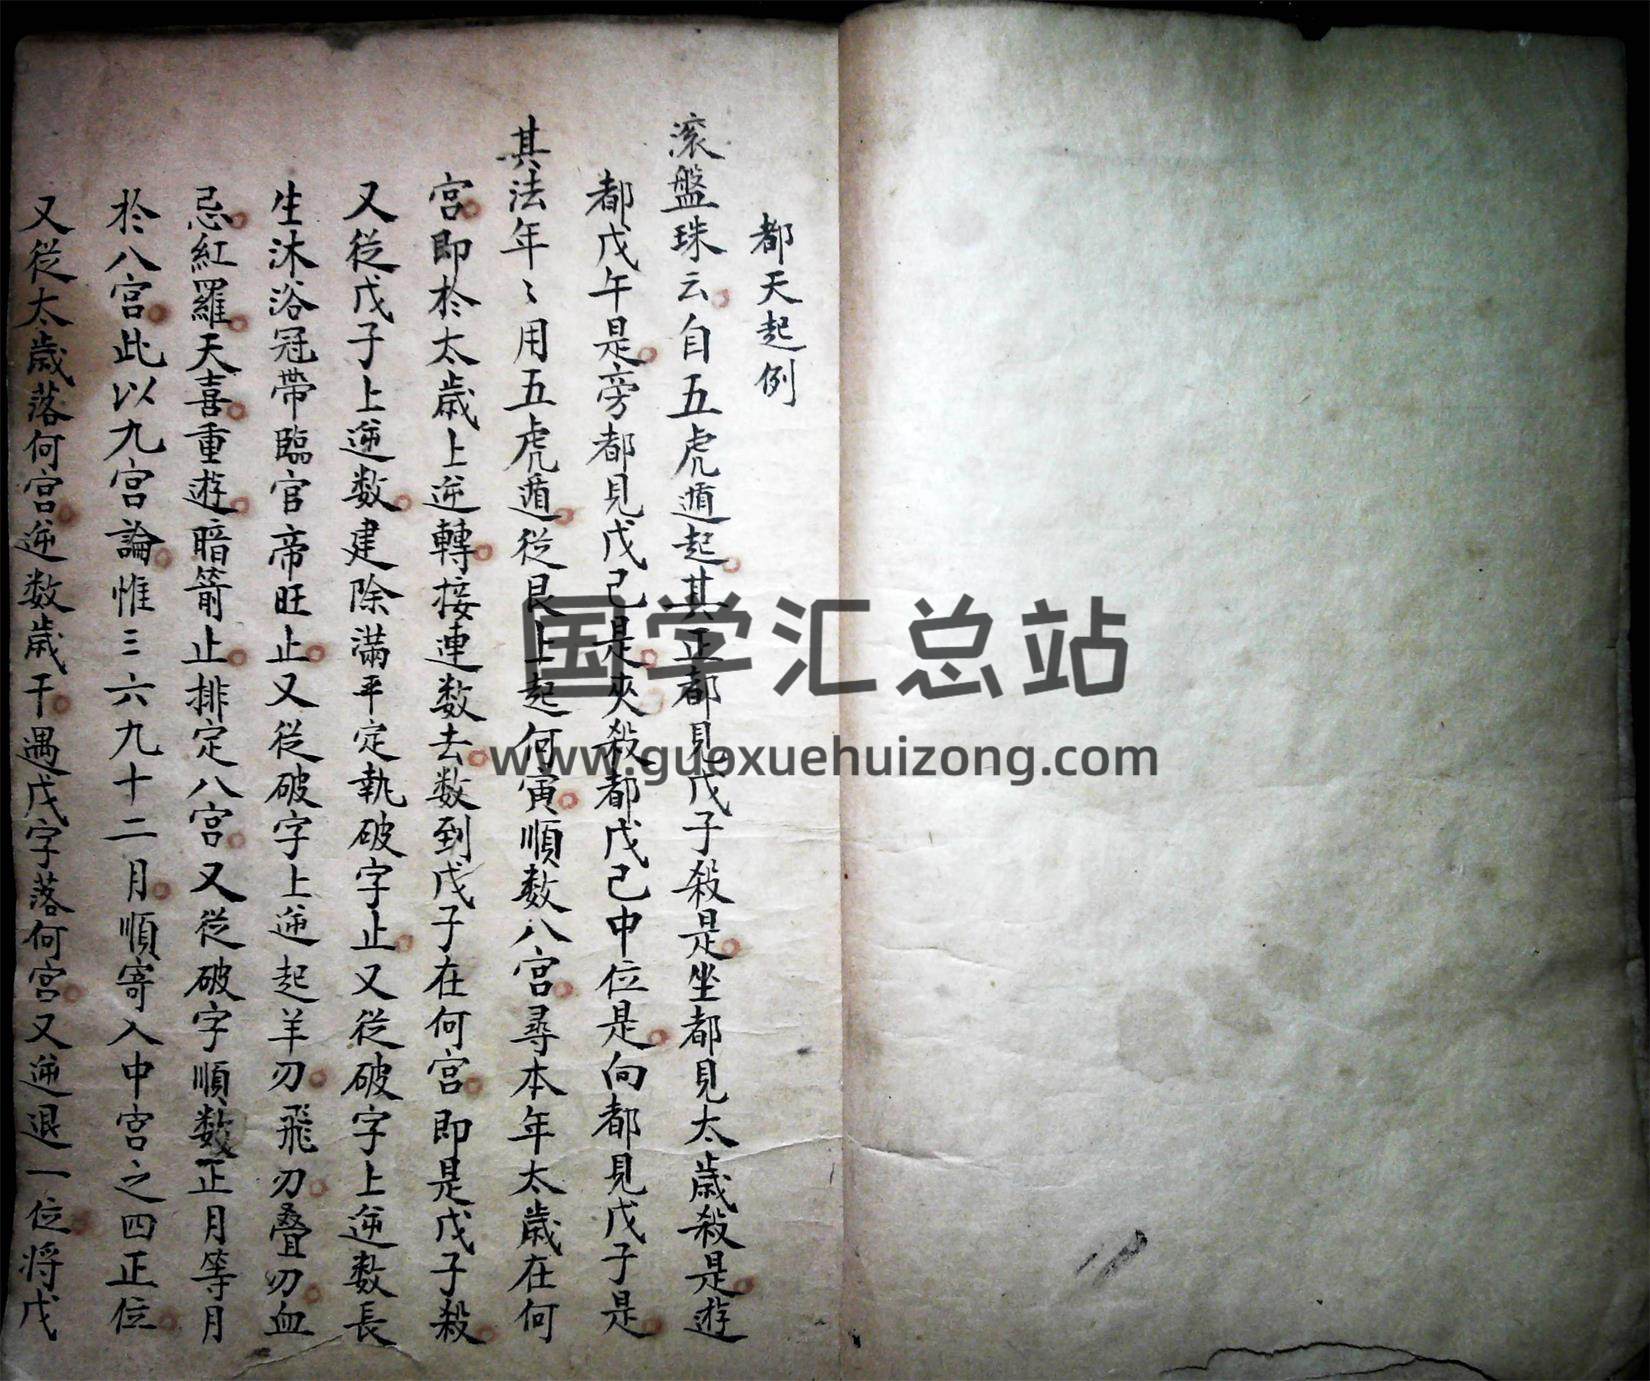 都天起例
滚盤珠云自五虎遁起其正都見戊子殺是坐都見太歲殺是遊
都戊午是旁都見戊己是夾殺都戊己中位是向都見戊子是
其法年〻用五虎遁從艮上起何寅順数八宮尋本年太歲在何
宮即於太歲上逆轉接連数去数到戊子在何宮即是戊子殺
又從戊子上逆数建除滿平定執破字止又從破字上逆数長
生沐浴冠帶臨官帝旺止又從破字上逆起羊刃飛刃叠刃血
忌紅羅天喜重遊暗箭止排定八宮又從破字順数正月等月
於八宮此以九宮論惟三六九十二月順寄入中宮之四正位
又從太歲落何宮逆数歲干遇戊字落何宮又逆退一位将戊
国学汇总站
www.guoxuehuizong.com